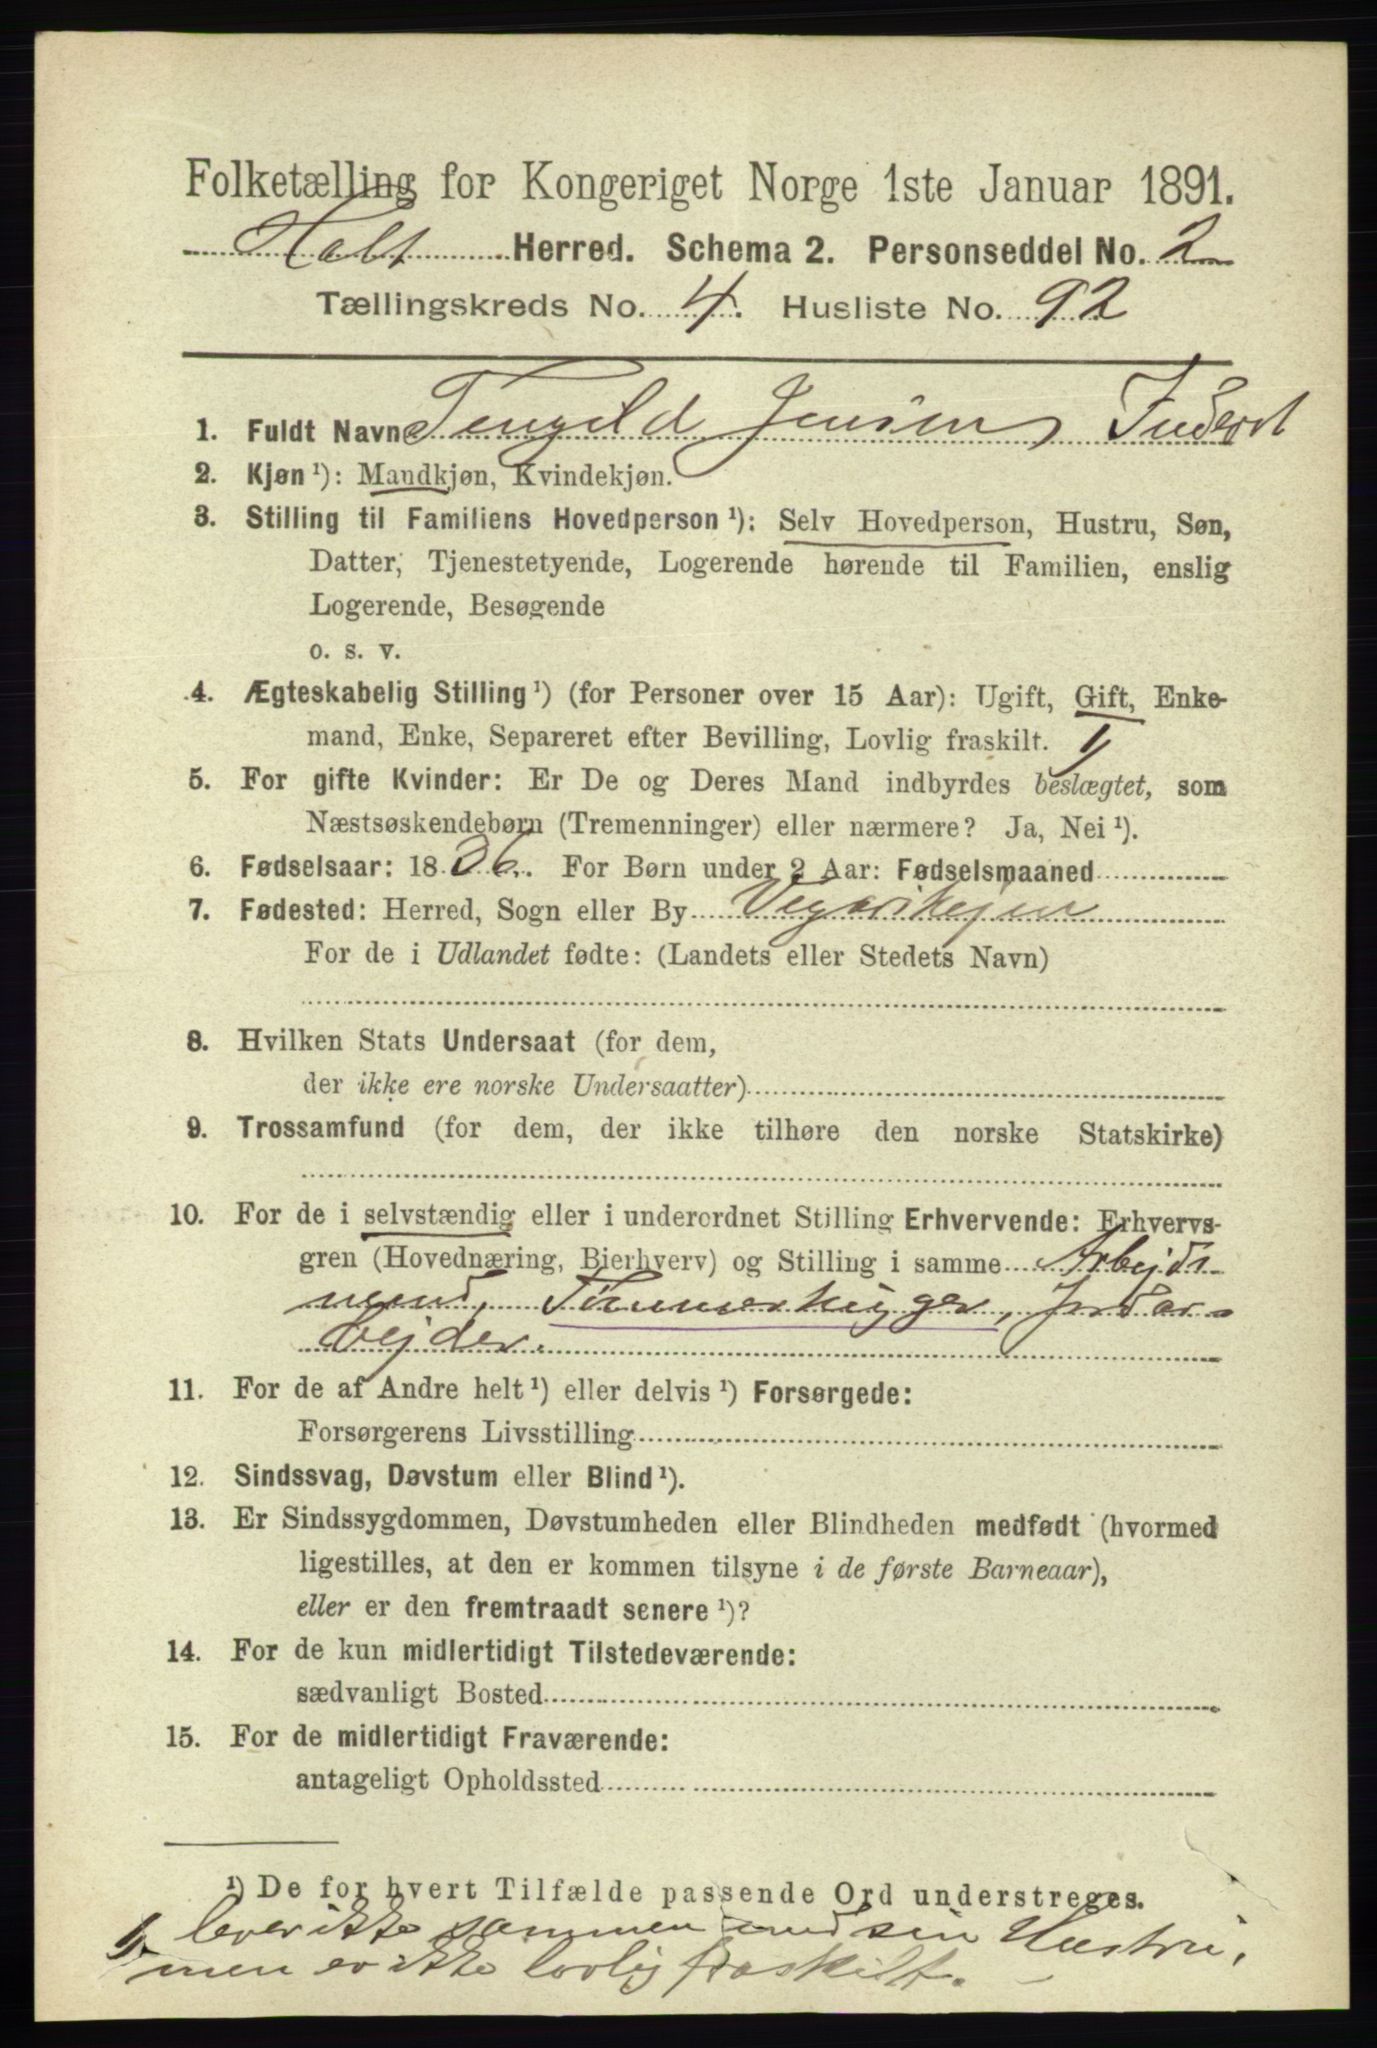 Folketælling for Kongeriget Norge 1ste Januar 1891.
Holt Herred. Schema 2. Personseddel No. 2
Tællingskreds No. 4. Husliste No. 92
1. Fuldt Navn Tengeld Jensen
2. Kjøn ¹): Mandkjøn, Kvindekjøn.
3. Stilling til Familiens Hovedperson ¹): Selv Hovedperson, Hustru, Søn,
Datter, Tjenestetyende, Logerende hørende til Familien, enslig
Logerende, Besøgende
o. s. v.
4. Ægteskabelig Stilling ¹) (for Personer over 15 Aar): Ugift, Gift, Enke-
mand, Enke, Separeret efter Bevilling, Lovlig fraskilt. 1)
5. For gifte Kvinder: Er De og Deres Mand indbyrdes beslægtet, som
Næstsøskendebørn (Tremenninger) eller nærmere? Ja, Nei ¹).
6. Fødselsaar: 1836. For Børn under 2 Aar: Fødselsmaaned
7. Fødested: Herred, Sogn eller By Vegarshejen
For de i Udlandet fødte: (Landets eller Stedets Navn)
8. Hvilken Stats Undersaat (for dem,
der ikke ere norske Undersaatter)
9. Trossamfund (for dem, der ikke tilhøre den norske Statskirke)
10. For de i selvstændig eller i underordnet Stilling Erhvervende: Erhvervs-
gren (Hovednæring, Bierhverv) og Stilling i samme Arbejds-
mand, Tømmerhugger, Jordar-
bejder.
11. For de af Andre helt ¹) eller delvis ¹) Forsørgede:
Forsørgerens Livsstilling
12. Sindssvag, Døvstum eller Blind ¹).
13. Er Sindssygdommen, Døvstumheden eller Blindheden medfødt (hvormed
ligestilles, at den er kommen tilsyne i de første Barneaar),
eller er den fremtraadt senere ¹)?
14. For de kun midlertidigt Tilstedeværende:
sædvanligt Bosted
15. For de midlertidigt Fraværende:
antageligt Opholdssted
¹) De for hvert Tilfælde passende Ord understreges.
1) lever ikke sammen med sin Hustru,
men er ikke lovlig fraskilt.